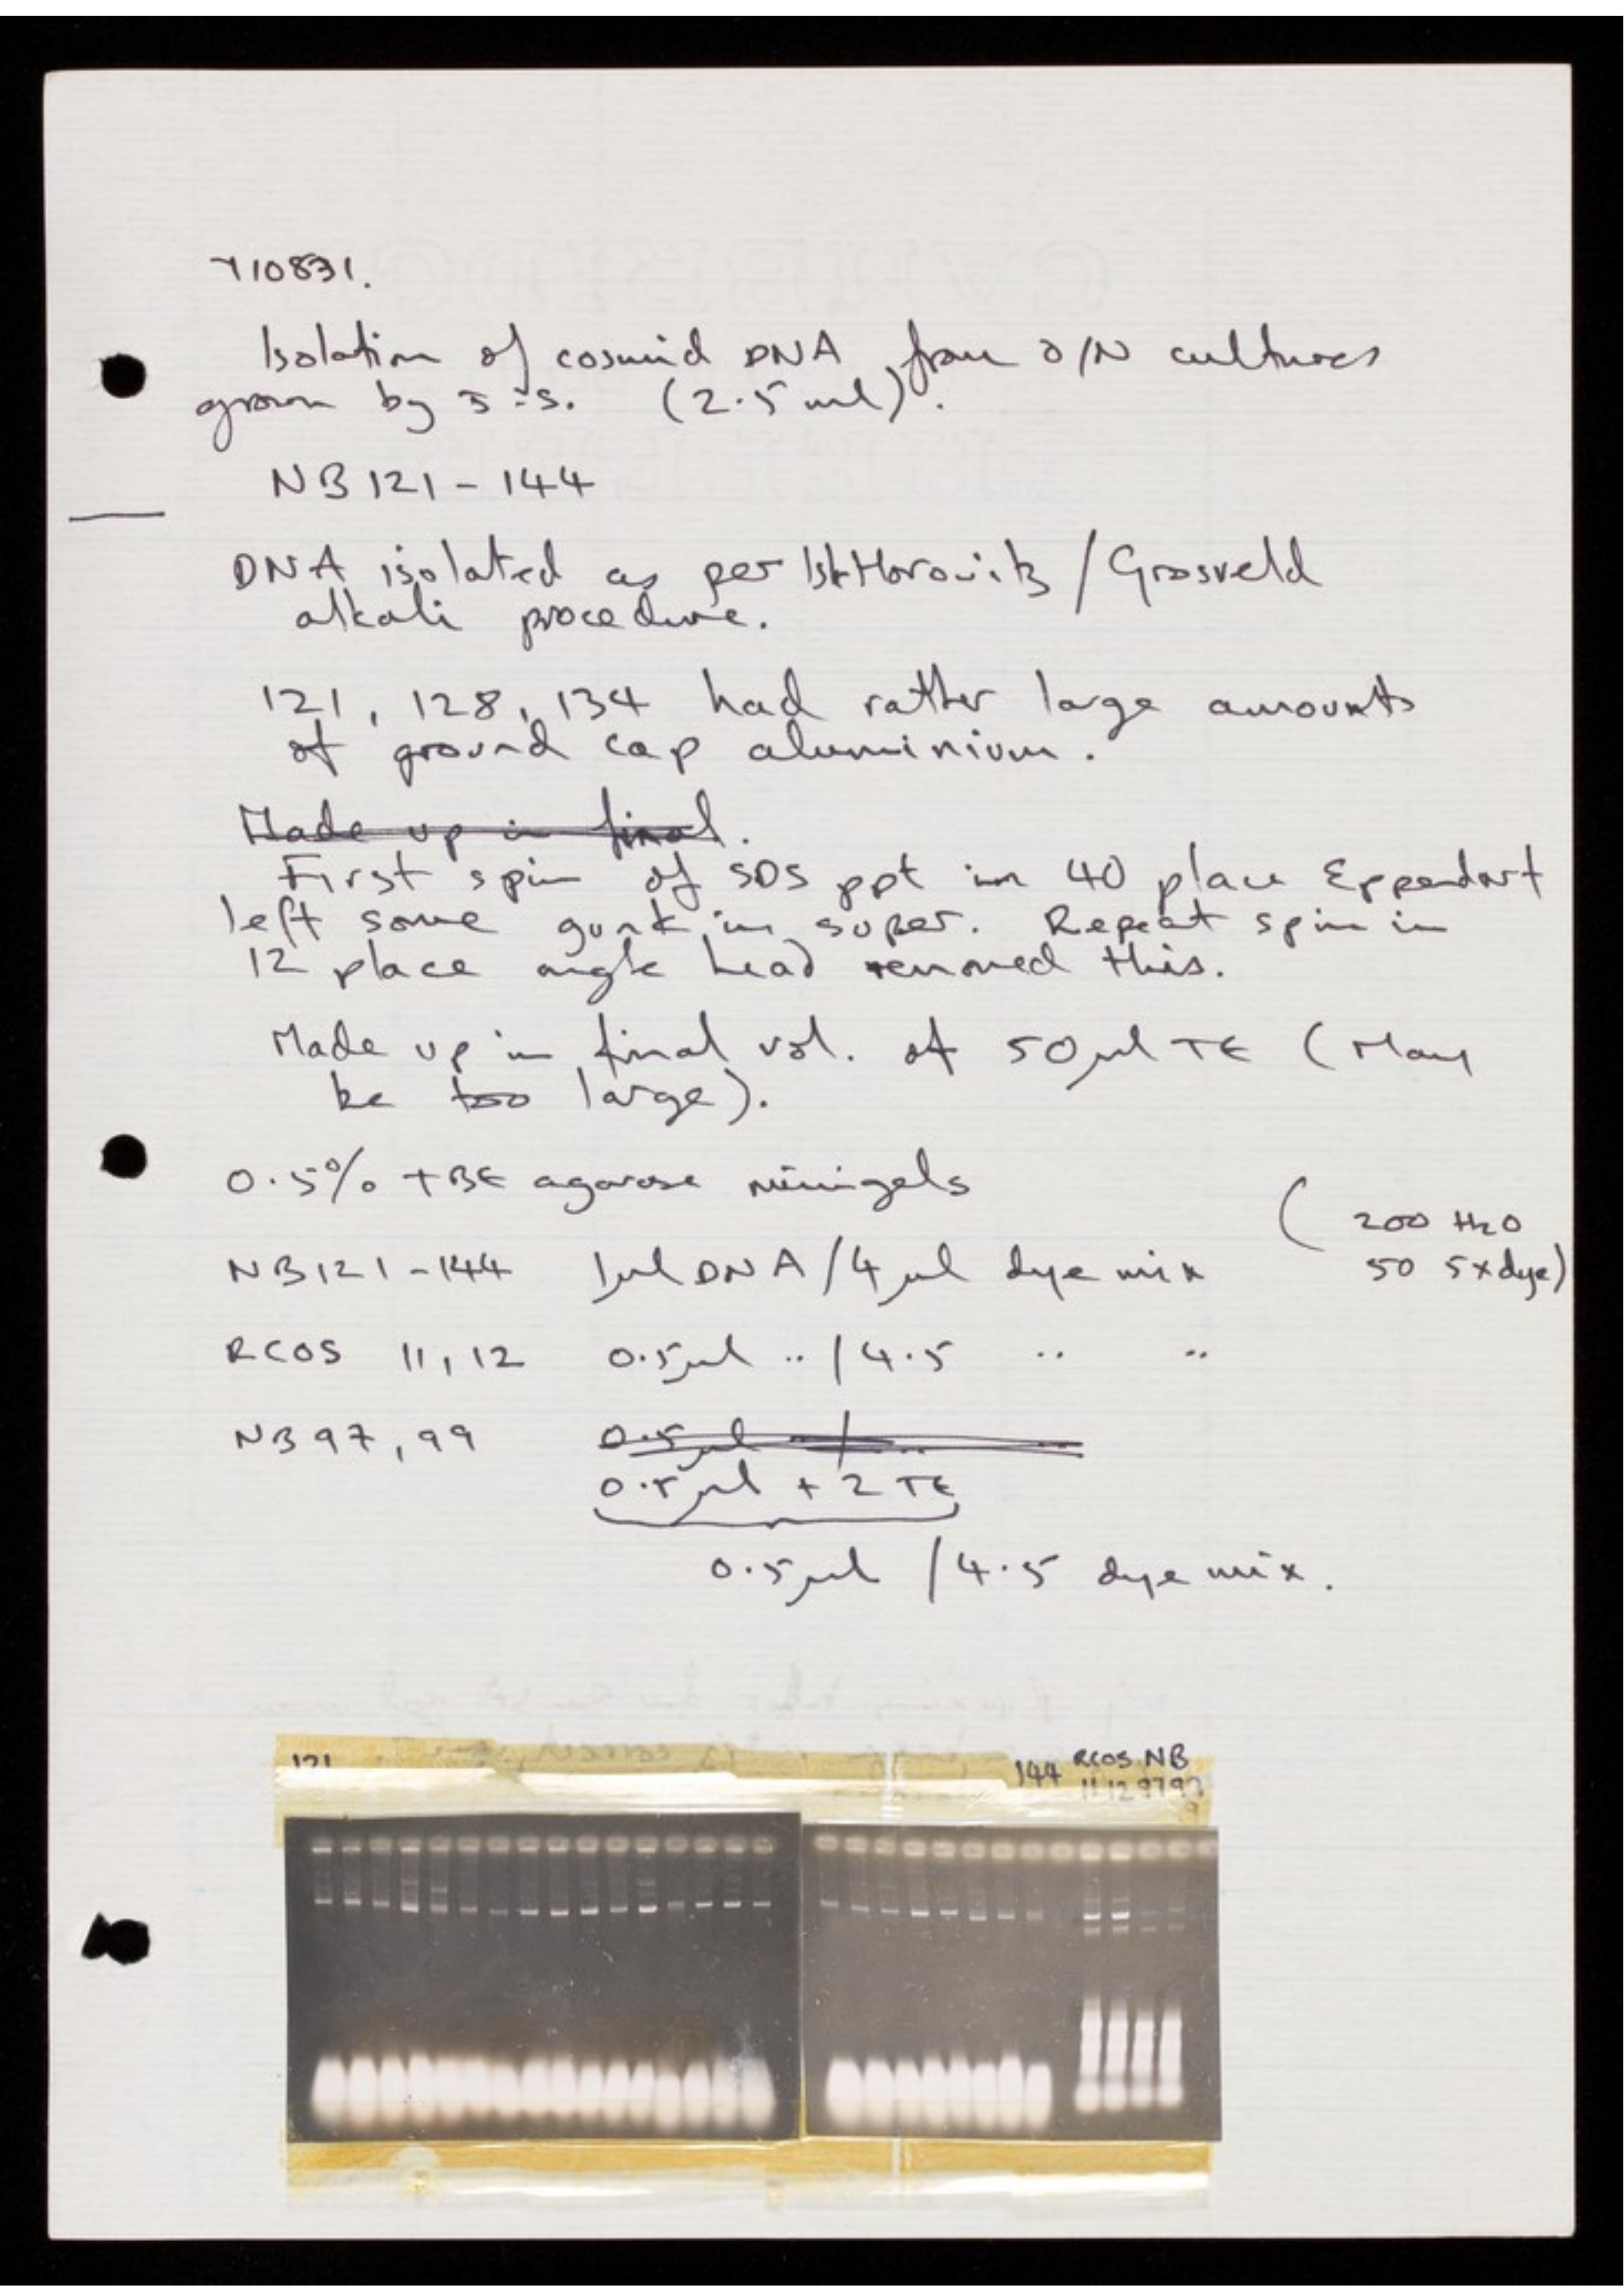 110831.
Isolation of cosmid DNA from O/N cultures
grown by J.S. (2.5 ml).
NB 121 - 144
DNA isolated as per Ish Horowitz / Grosveld
alkali procedure.
121, 128, 134 had rather large amounts
of ground cap aluminium.
Made up in final.
First spin of SDS ppt in 40 place Eppendorf
left some gunk in super. Repeat spin in
12 place angle head removed this.
Made up in final vol. of 50 µl TE (May
be too large).
0.5% TBE agarose minigels
(200 H2O
NB121-144 1µl DNA/4µl dye mix 50 5x dye)
RCOS 11,12 0.5µl .. / 4.5 .. ..
NB 97, 99 0.5µl / ..
0.5µl + 2 TE
0.5µl / 4.5 dye mix.
121 144 RCOS NB
11 12 97 97
9